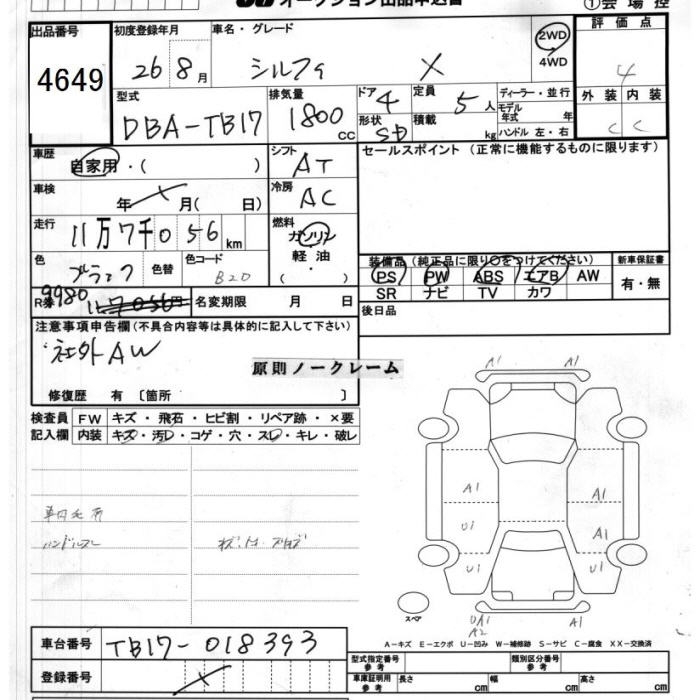 オークション出品申込書
①会場控
出品番号
4649
初度登録年月
26 8月
車名・グレード
シルフィ X
2WD
4WD
評価点
4
外装 内装
C C
型式
DBA-TB17
排気量
1800 cc
ドア 4
形状 SD
定員 5人
積載 kg
ディーラー・並行
モデル年式 年
ハンドル 左・右
車歴
自家用・( )
シフト
AT
セールスポイント (正常に機能するものに限ります)
車検
年 月( 日)
冷房
AC
走行
11万7千056km
燃料
ガソリン
軽油
( ・ )
色
ブラック
色替
色コード
B20
装備品 (純正品に限り○をつけてください)
新車保証書
PS PW ABS エアB AW
SR ナビ TV カワ
有・無
R券
9980
名変期限 月 日
後日品
注意事項申告欄(不具合内容等は具体的に記入して下さい)
社外AW
原則ノークレーム
修復歴 有 〔箇所 〕
検査員記入欄
FW キズ・飛石・ヒビ割・リペア跡・×要
内装 キズ・汚レ・コゲ・穴・スレ・キレ・破レ
ハンドルスレ
A1 A1
A1 A1
U1 A1
U1 A1
スペア
UA1 A1
A2
A-キズ E-エクボ U-凹み W-補修跡 S-サビ C-腐食 XX-交換済
車台番号
TB17-018393
登録番号
型式指定番号 参考
類別区分番号 参考
車庫証明用 参考
長さ cm 幅 cm 高さ cm